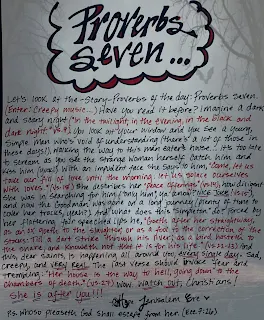 Proverbs
Seven...
Let's look at the -Story- Proverbs of the day: Proverbs seven.
(Enter: Creepy music...) Have you read it before? Imagine a dark
and stormy night ("In the twilight, in the evening, in the black and
dark night." Vs. 9). You look out your window and you see a young,
simple man who's void of understanding (there's a lot of those in
these days), walking the way to this man eater's house... It's too late
to scream as you see the strange woman catch him and
kiss him (yuck!) with an impudent face she says to him, "Come, let us
take our fill of love until the morning, let us solace ourselves
with loves." (Vs. 18) She describes her "peace offerings" (Vs. 14),
she was searching for him ("only him", you know?
and how the Goodman was gone on a long journey (plenty of time to
cover her tracks, yeah?) And while does this simpleton, get forced by
her flattering, fair speeches? (Vs. 21) He, "Goeth after her straightway,
as an ox goeth to the slaughter, or as a fool to the correction of the
stocks; Till a dart strike through his liver; as a bird hasteth to
the snare, and knoweth not that it is for his life." (Vs. 22-23) And
this, dear saints, is happening all around you, every single day. Sad,
creepy, and very real. The last verse should provoke fear and
trembling: "Her house is the way to hell, going down to the
chambers of death." (Vs. 27) Wow. Watch out, Christians!
she is after you!!!
Jerusalem Eve
P.S. Whoso pleaseth God shall escape from her. (Ecc. 7:26)